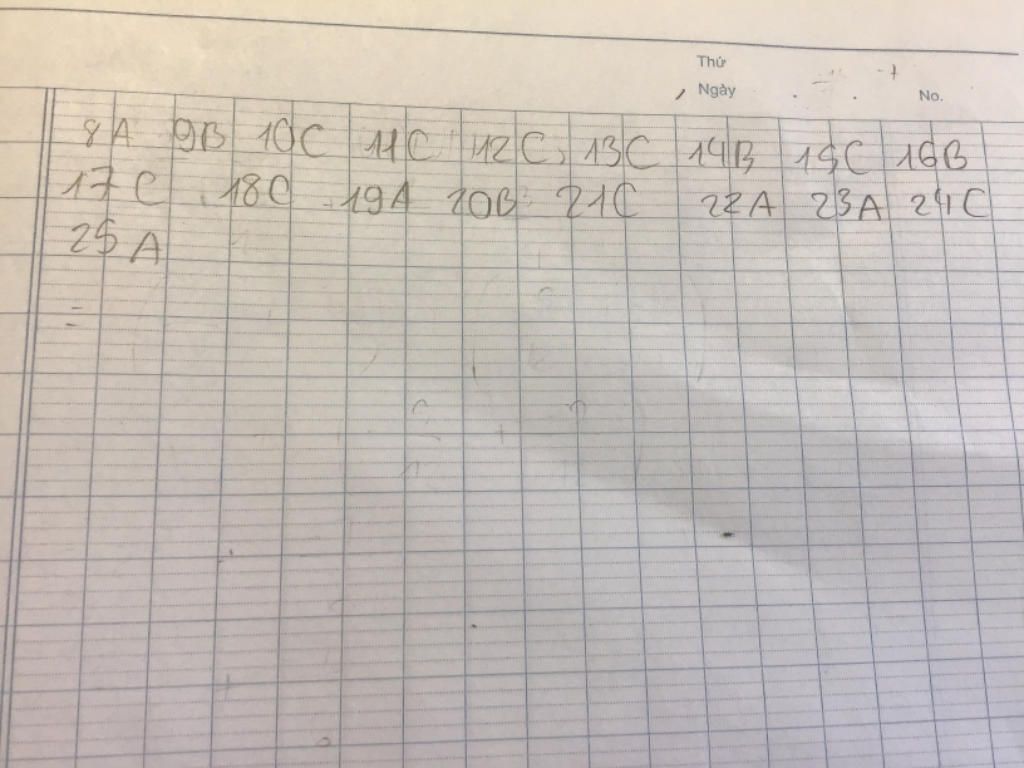 Thứ
Ngày No.
8A 9B 10C 11C 12C 13C 14B 15C 16B
17C 18C 19A 20B 21C 22A 23A 24C
25A